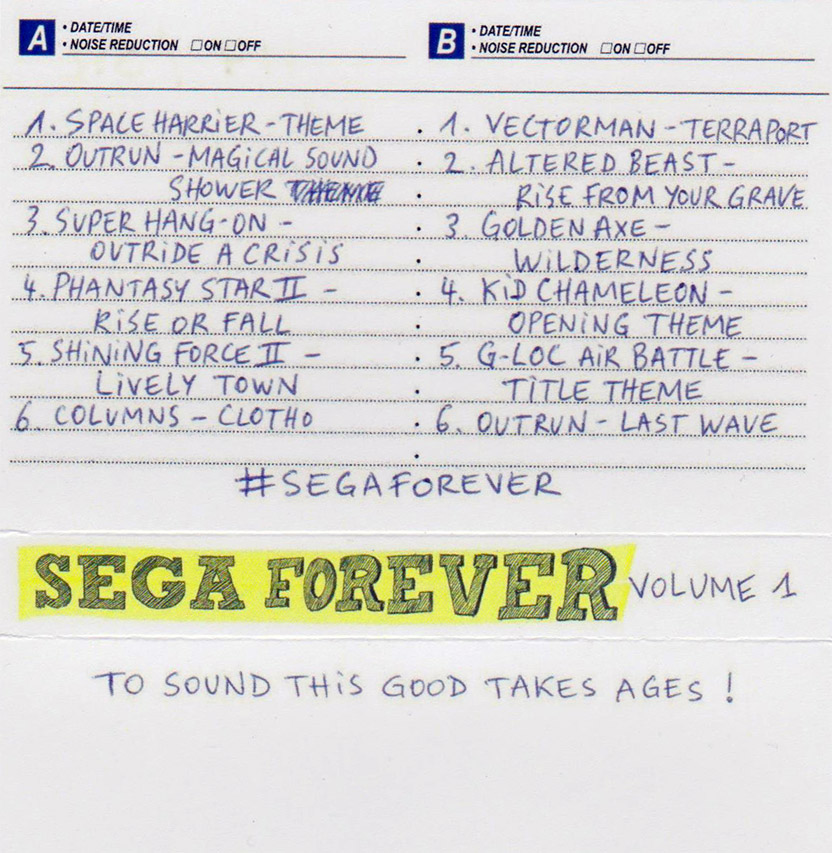 A • DATE/TIME
• NOISE REDUCTION □ON □OFF
1. SPACE HARRiER - THEME
2. OUTRUN - MAGiCAL SOUND
SHOWER THEME
3. SUPER HANG-ON -
OUTRiDE A CRiSiS
4. PHANTASY STAR II -
RiSE OR FALL
5. SHiNiNG FORCE II -
LiVELY TOWN
6. COLUMNS - CLOTHO
B • DATE/TIME
• NOISE REDUCTION □ON □OFF
1. VECTORMAN - TERRAPORT
2. ALTERED BEAST -
RiSE FROM YOUR GRAVE
3. GOLDEN AXE -
WiLDERNESS
4. KiD CHAMELEON -
OPENiNG THEME
5. G-LOC AiR BATTLE -
TiTLE THEME
6. OUTRUN - LAST WAVE
#SEGAFOREVER
SEGA FOREVER VOLUME 1
TO SOUND THiS GOOD TAKES AGES !